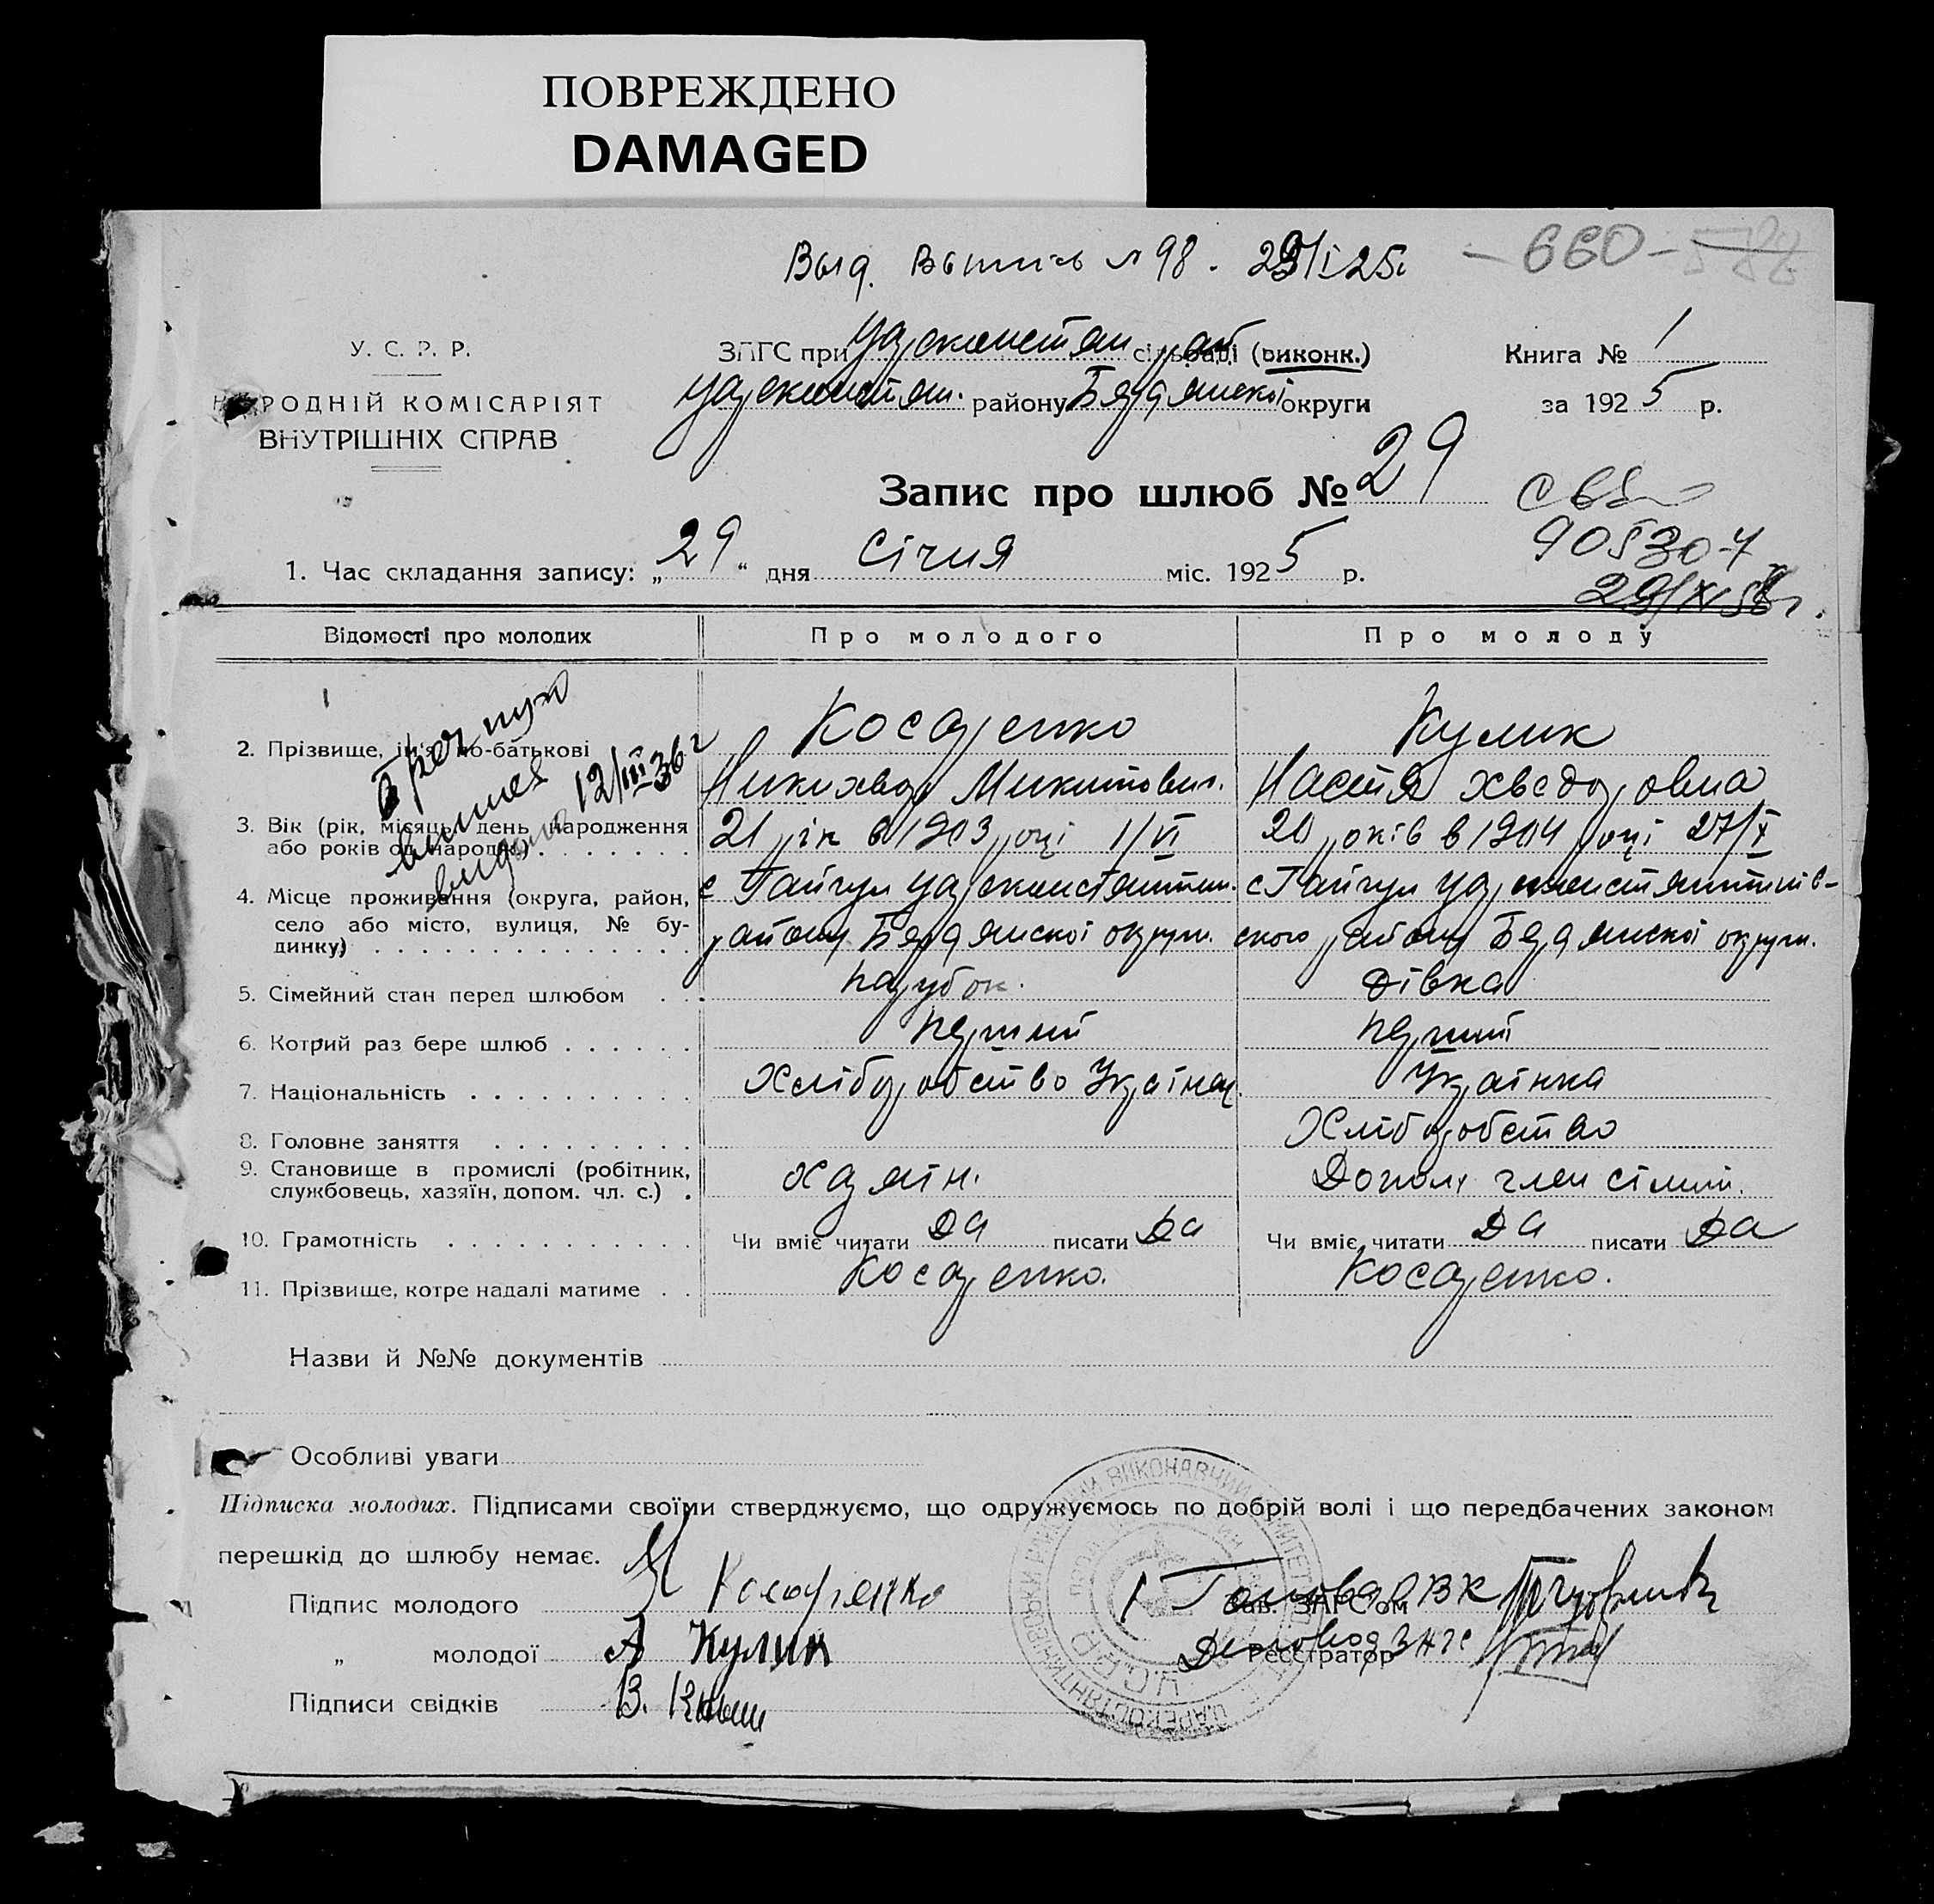 ПОВРЕЖДЕНО
DAMAGED
- 660 - 582
Выд. Выпись № 98. 29/I 25г
У. С. Р. Р.
НАРОДНІЙ КОМІСАРІЯТ
ВНУТРІШНІХ СПРАВ
ЗАГС при Царекостян рай сільраді (виконк.)
Царекостян. району Бердянської округи
Книга № 1
за 1925 р.
Запис про шлюб № 29
905307
29/XI 58г.
1. Час складання запису: „29“ дня Січня міс. 1925 р.
Відомості про молодих
Про молодого
Про молоду
о браг
выпись
видана 12/III 36 г
2. Прізвище, ім'я, по-батькові
Косаренко
Никихвор Микитович.
Кулик
Настя Хведоровна
3. Вік (рік, місяць, день народження або років од народж.) . . . . . . .
21 рік в 1903 році 1/VI
20 років в 1904 році 27/X
4. Місце проживання (округа, район, село або місто, вулиця, № будинку) . . . . . . . . . . . . . .
с Гайчул Царекостянтин. району Бердянскої округи.
с Гайчул Царекостянтинівского району Бердянскої округи.
5. Сімейний стан перед шлюбом . .
парубок.
дівка
6. Котрий раз бере шлюб . . . . . .
перший
перший
7. Національність . . . . . . . . . .
Хліборобство Українец.
Українка
8. Головне заняття . . . . . . . . .
Хліборобство
9. Становище в промислі (робітник, службовець, хазяїн, допом. чл. с.) .
хазяін.
Допом член сімьи.
10. Грамотність . . . . . . . . . . .
Чи вміє читати Да писати Да
Чи вміє читати Да писати Да
11. Прізвище, котре надалі матиме . .
Косаренко.
Косаренко.
Назви й №№ документів
Особливі уваги
Підписка молодих. Підписами своїми стверджуємо, що одружуємось по добрій волі і що передбачених законом
перешкід до шлюбу немає.
Підпис молодого Н Косаренко
Голова РВК
Зав. ЗАГС'ом
„ молодої А Кулик
Діловод ЗАГС
Реєстратор
Підписи свідків В.
У.С.Р.Р.